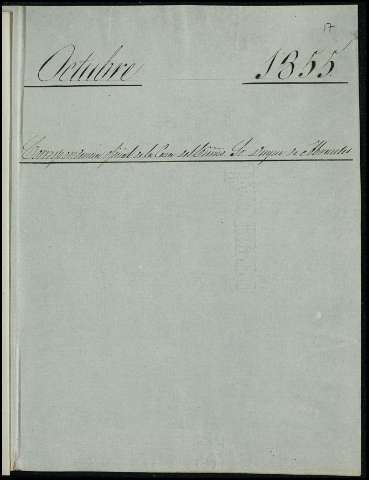 17
Octubre 1855
Correspondencia oficial de la Casa del Excmo. Sr. Duque de Abrantes